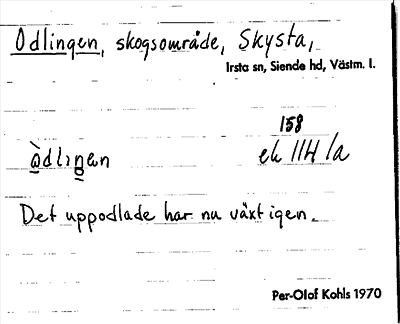 Odlingen, skogsområde, Skysta,
Irsta sn, Siende hd, Västm. l.
158
ek 11H 1a
Det uppodlade har nu växt igen.
Per-Olof Kohls 1970